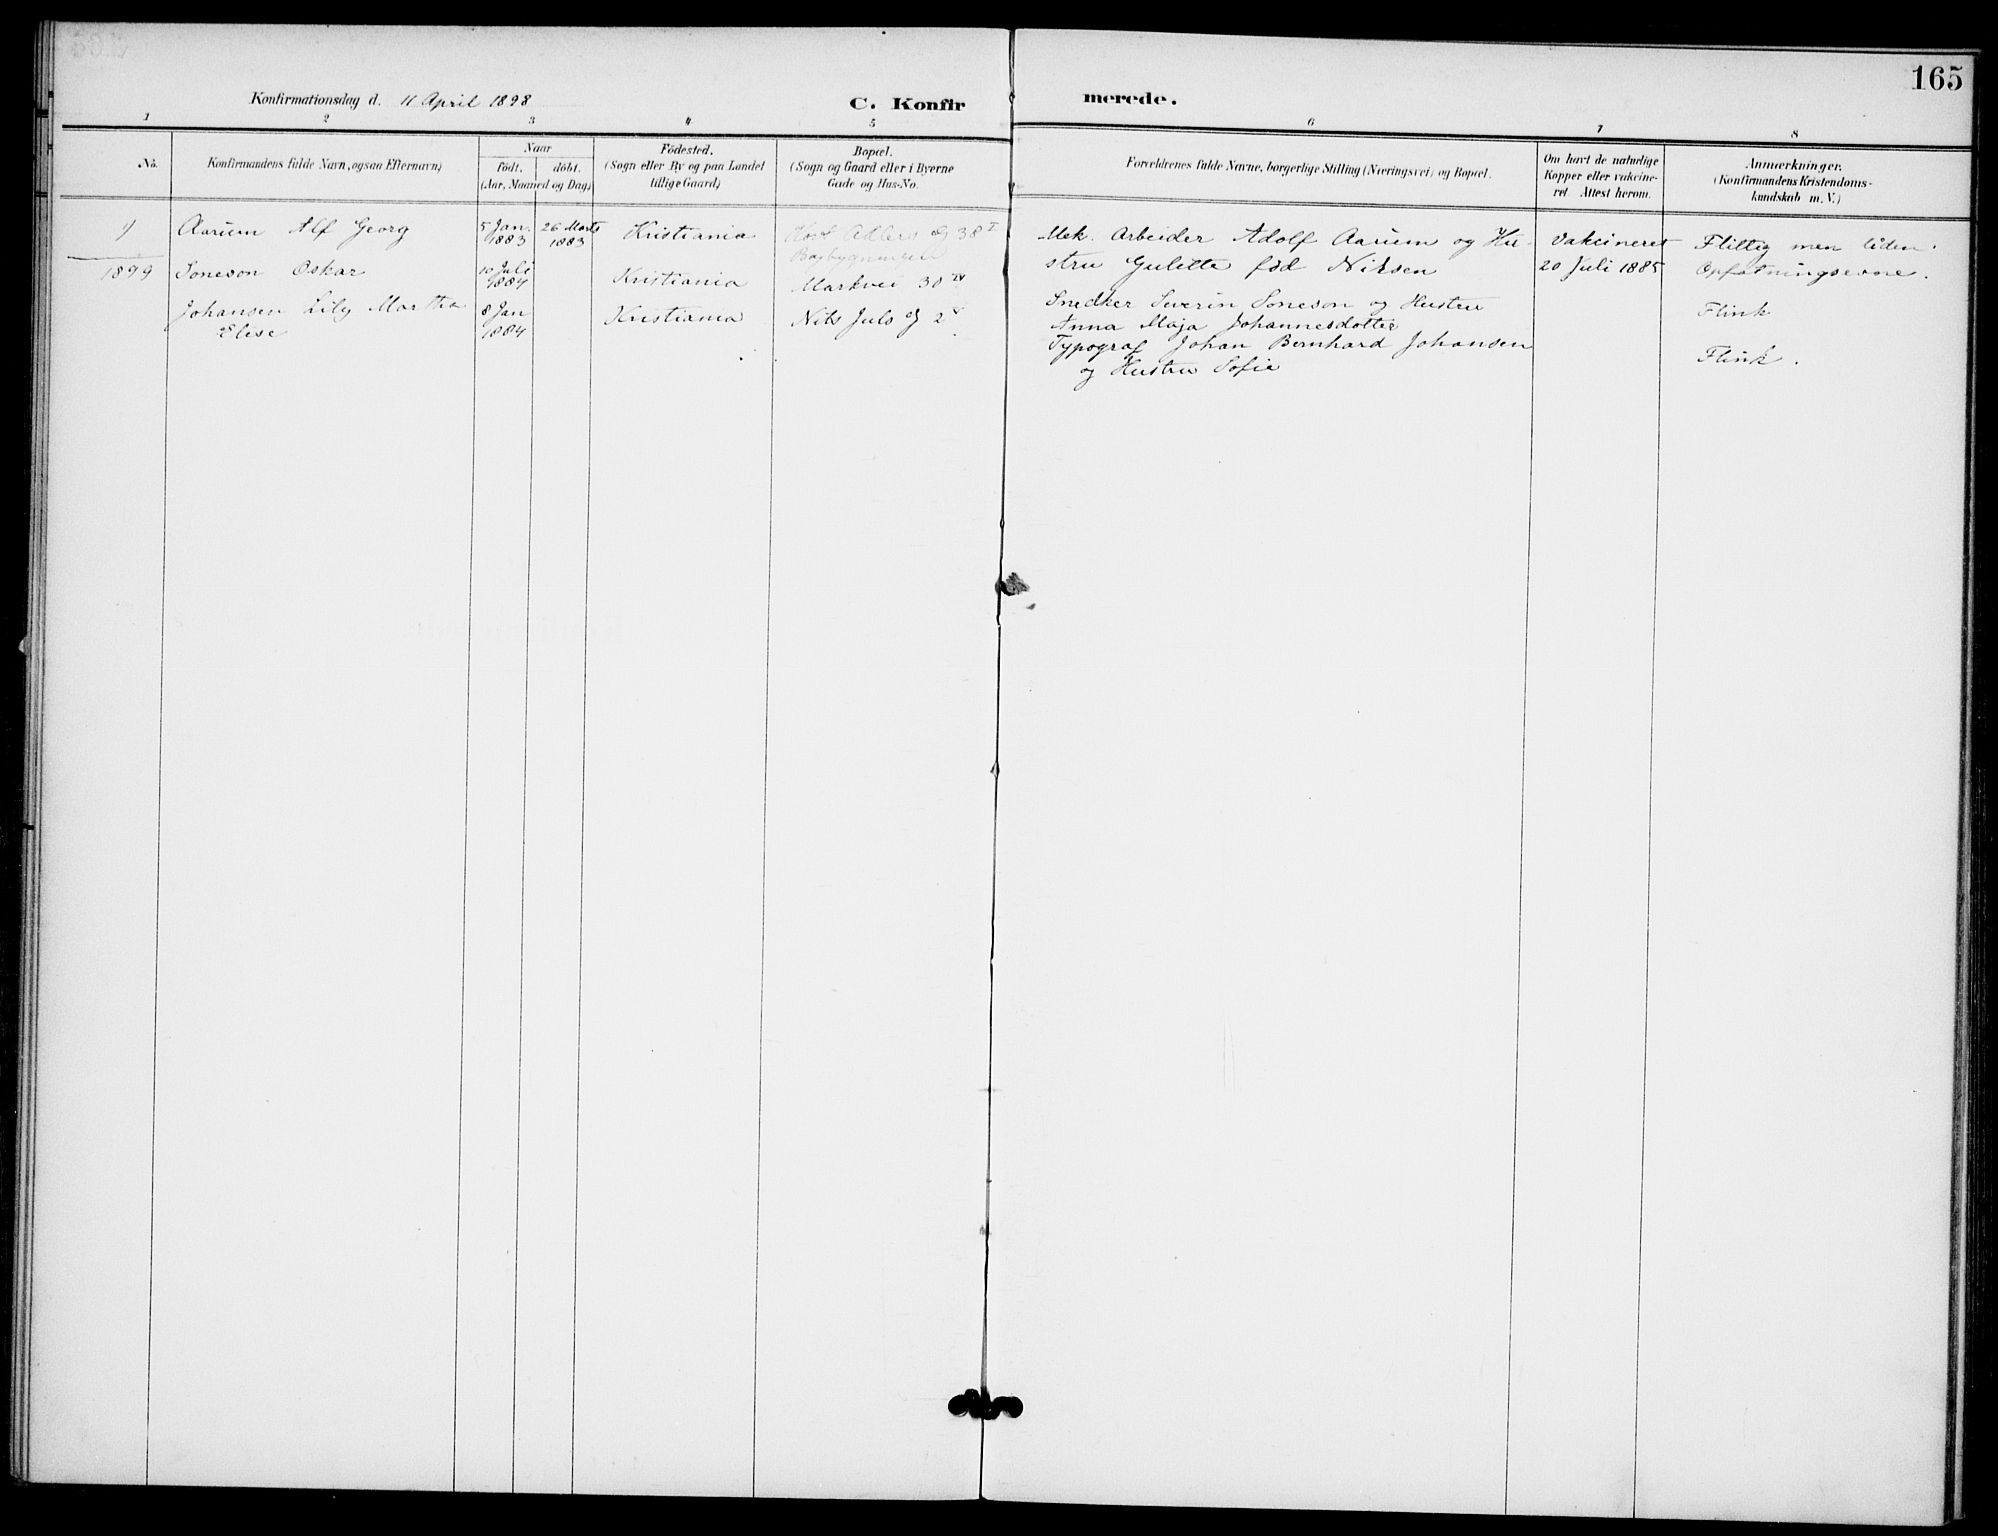 165
Konfirmationsdag d. 11 April 1898
C. Konfir merede.
1 2 3 4 5 6 7 8
No.
Konfirmandens fulde Navn, ogsaa Efternavn)
Naar
født. døbt.
(Aar, Maaned og Dag)
Födested.
(Sogn eller By og paa Landet
tillige Gaard)
Bopæl.
(Sogn og Gaard eller i Byerne
Gade og Hus-No.
Forældrenes fulde Navne, borgerlige Stilling (Næringsvei) og Bopæl.
Om havt de naturlige
Kopper eller vakcine-
ret. Attest herom.
Anmærkninger.
(Konfirmandens Kristendoms-
kundskab m. V.)
1)
Aarum Alf Georg
5 Jan.
1883
26 Marts
1883
Kristiania
Adlers g 38 I
Bagbygningen
Mek. Arbeider Adolf Aarum og Hu-
stru Gulitte fød Nilsen
Vakcineret
20 Juli 1885
Flittig men liden
Opfatningsevne.
1899
Soneson Oskar
10 Juli
1884
Kristiania
Markvei 30 IV
Snedker Severin Soneson og Hustru
Anna Maja Johannesdotter
Flink
Johansen Lily Martha
Elise
8 Jan
1884
Kristiania
Nils Juls g 2
Typograf Johan Bernhard Johansen
og Hustru Sofie
Flink.